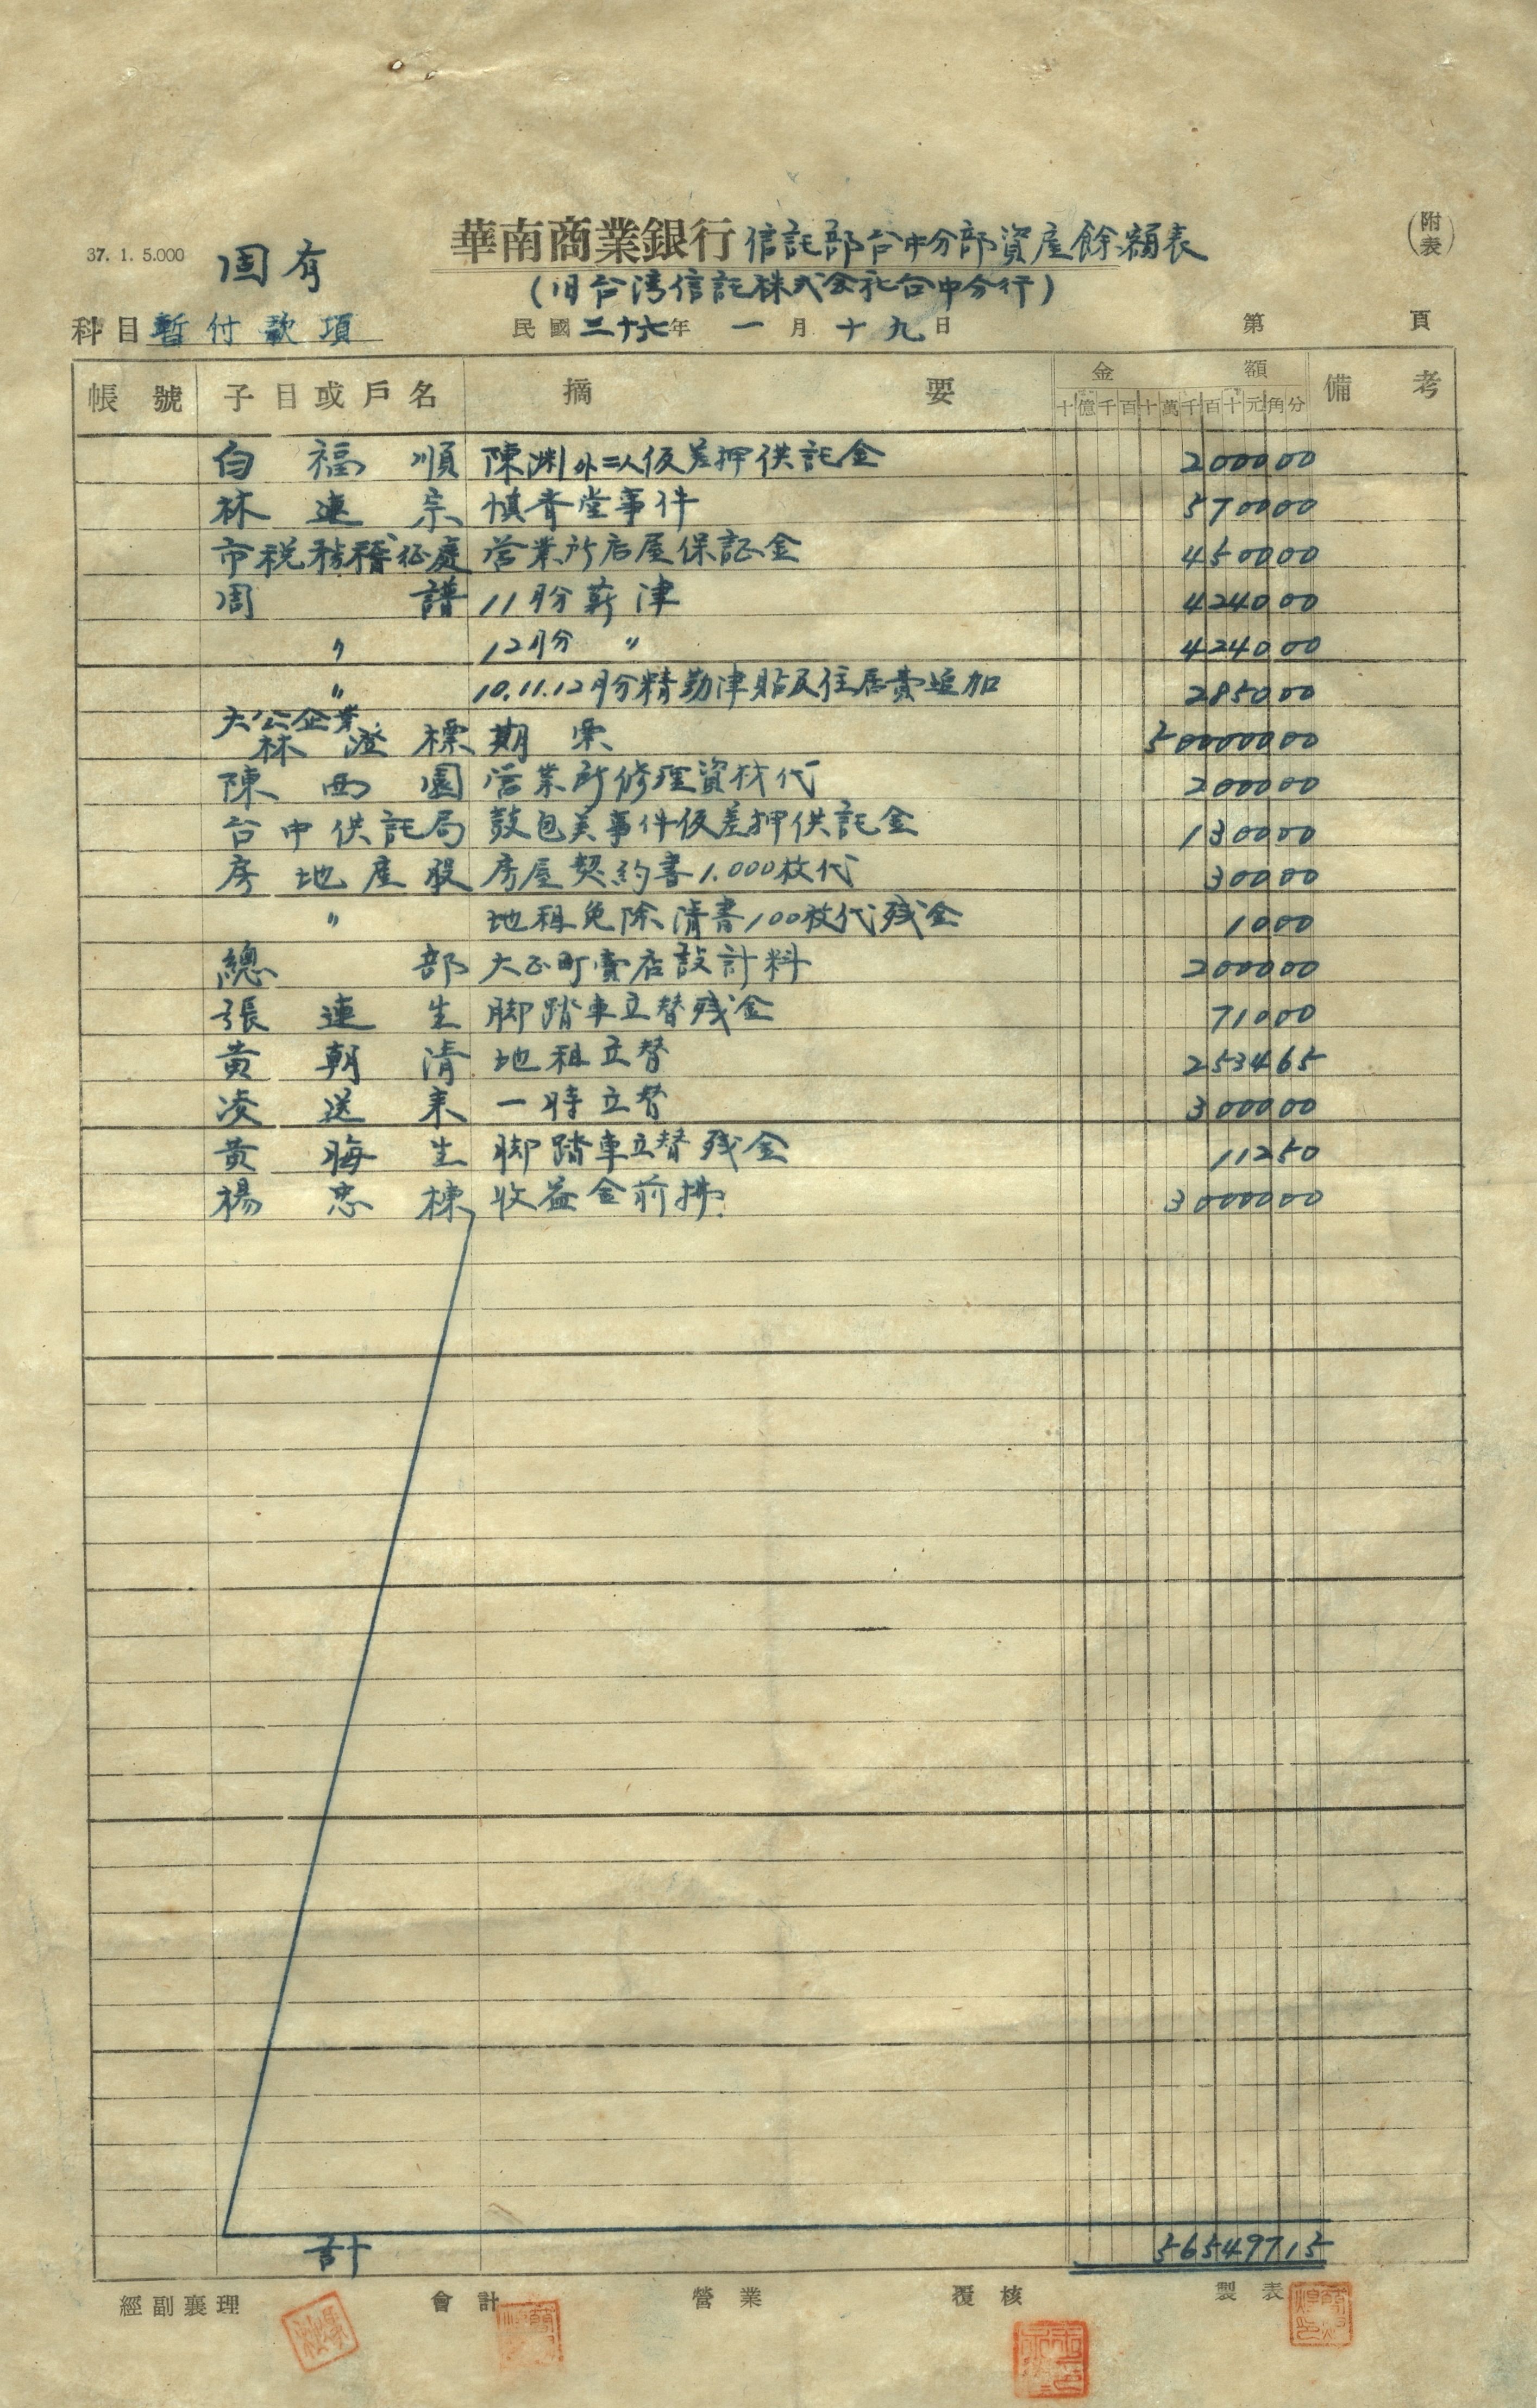 37. 1. 5.000
固有
華南商業銀行信託部台中分部資産餘額表
(附表)
(旧台湾信託株式会社台中分行)
科目暫付款項 民國三十六年 一月十九日 第 頁
帳號 子目或戶名 摘要 金額 備考
十億千百十萬千百十元角分
白福順 陳渊外二人仮差押供託金 200000
林連宗 慎斉堂事件 570000
市税務稽征處 営業所店屋保証金 450000
周譜 11月分薪津 424000
〃 12月分 〃 424000
〃 10.11.12月分精勤津貼及住居費追加 285000
大公企業
林澄標 期票 50000000
陳西園 営業所修理資材代 200000
台中供託局 鼓包美事件仮差押供託金 130000
房地産股 房屋契約書1.000枚代 30000
〃 地租免除清書100枚代残金 1000
總部 大正町賣店設計料 200000
張連生 脚踏車立替残金 71000
黄朝清 地租立替 253465
凌送来 一時立替 300000
黄海生 脚踏車立替残金 11250
楊忠棟 收益金前拂 3000000
計 56549715
經副襄理 會計 營業 覆核 製表